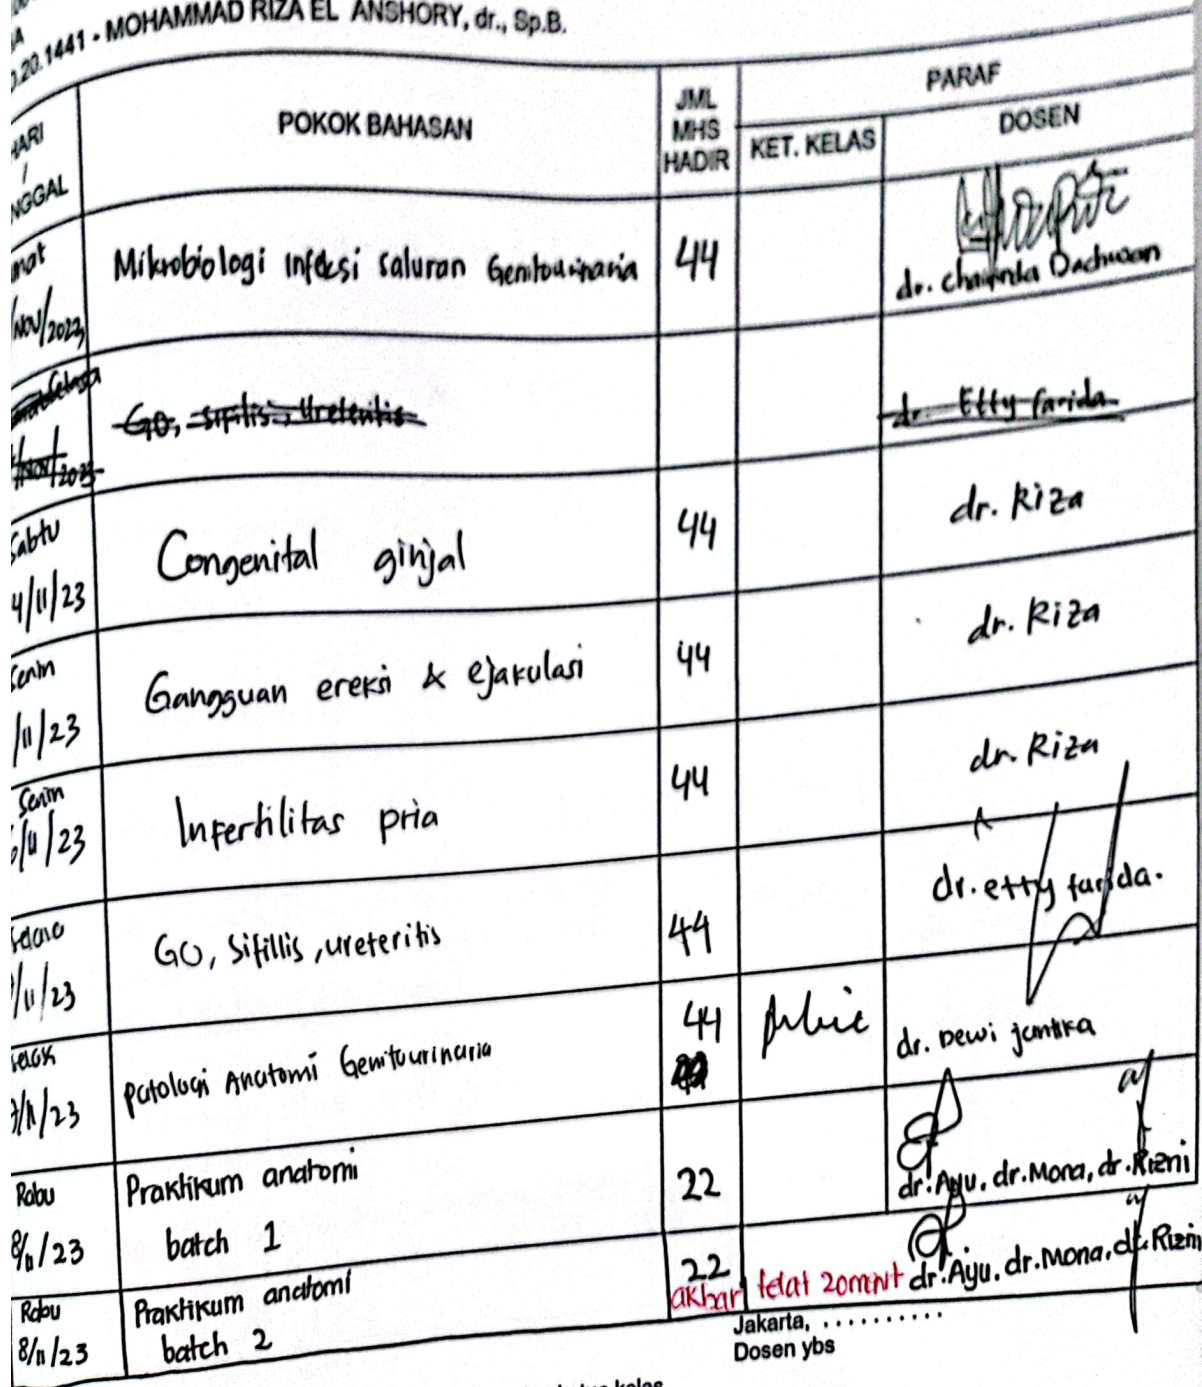 .20.1441 - MOHAMMAD RIZA EL ANSHORY, dr., Sp.B.
HARI
/
NGGAL
POKOK BAHASAN
JML
MHS
HADIR
PARAF
KET. KELAS
DOSEN
mat
/Nov/2023
Mikrobiologi Infeksi Saluran Genitourinaria
44
dr.
Selasa
/Nov/2023
GO, sifilis, Ureteritis
dr. Etty farida
Sabtu
4/11/23
Congenital ginjal
44
dr. Riza
Senin
/11/23
Gangguan ereksi & ejakulasi
44
dr. Riza
Senin
6/11/23
Infertilitas pria
44
dr. Riza
Selasa
/11/23
GO, Sifillis, ureteritis
44
dr. etty farida.
7/11/23
Patologi Anatomi Genitourinaria
44
dr. Dewi jantika
Rabu
8/11/23
Praktikum anatomi
batch 1
22
dr. Ayu, dr. Mona, dr. Rizni
Rabu
8/11/23
Praktikum anatomi
batch 2
22
akbar telat 20menit
dr. Ayu, dr. Mona, dr. Rizni
Jakarta, ..........
Dosen ybs
kelas